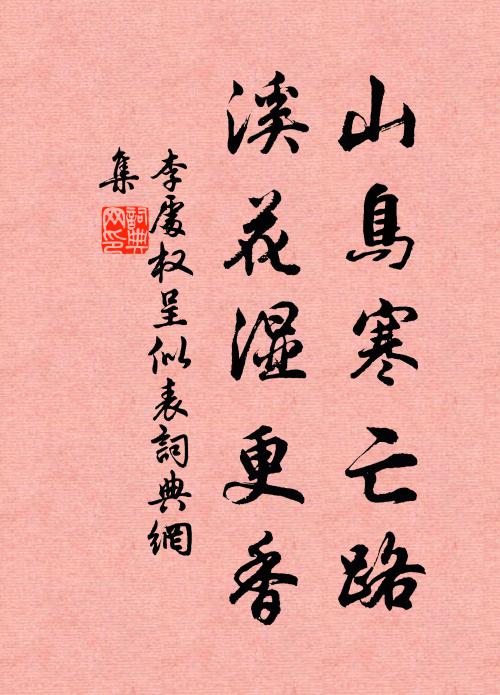 山鳥寒亡路
溪花湿更香
李處权呈似表詞典網
集
詞典
网印